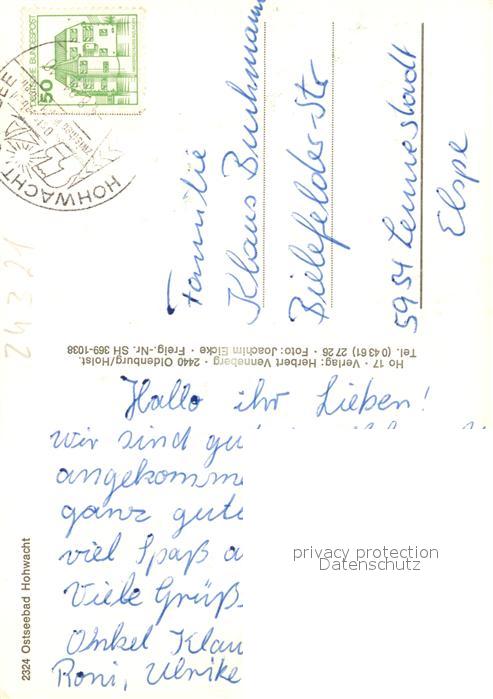 Hallo ihr Lieben!
Wir sind gu
angekomme
ganz gute
viel Spaß a
Viele Grüß
Onkel Klau
Roni, Ulrike
Familie
Klaus Buchmann
Bielefelder-Str
5954 Lennestadt
Elspe
Ho 17 · Verlag: Herbert Venneberg · 2440 Oldenburg/Holst.
Tel. (043 61) 27 26 · Foto: Joachim Eicke · Freig.-Nr. SH 369-1038
2324 Ostseebad Hohwacht
DEUTSCHE BUNDESPOST
50
HOHWACHT
24321
privacy protection
Datenschutz